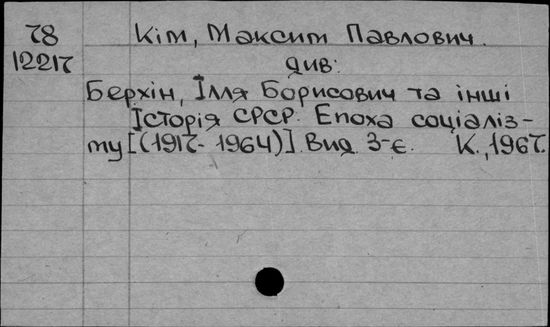 78 Кім, Максим Павлович.
12217 див:
Берхін, Ілля Борисович та інші
Історія СРСР. Епоха соціаліз-
му [(1917-1964)]. Вид. 3-є. К., 1967.